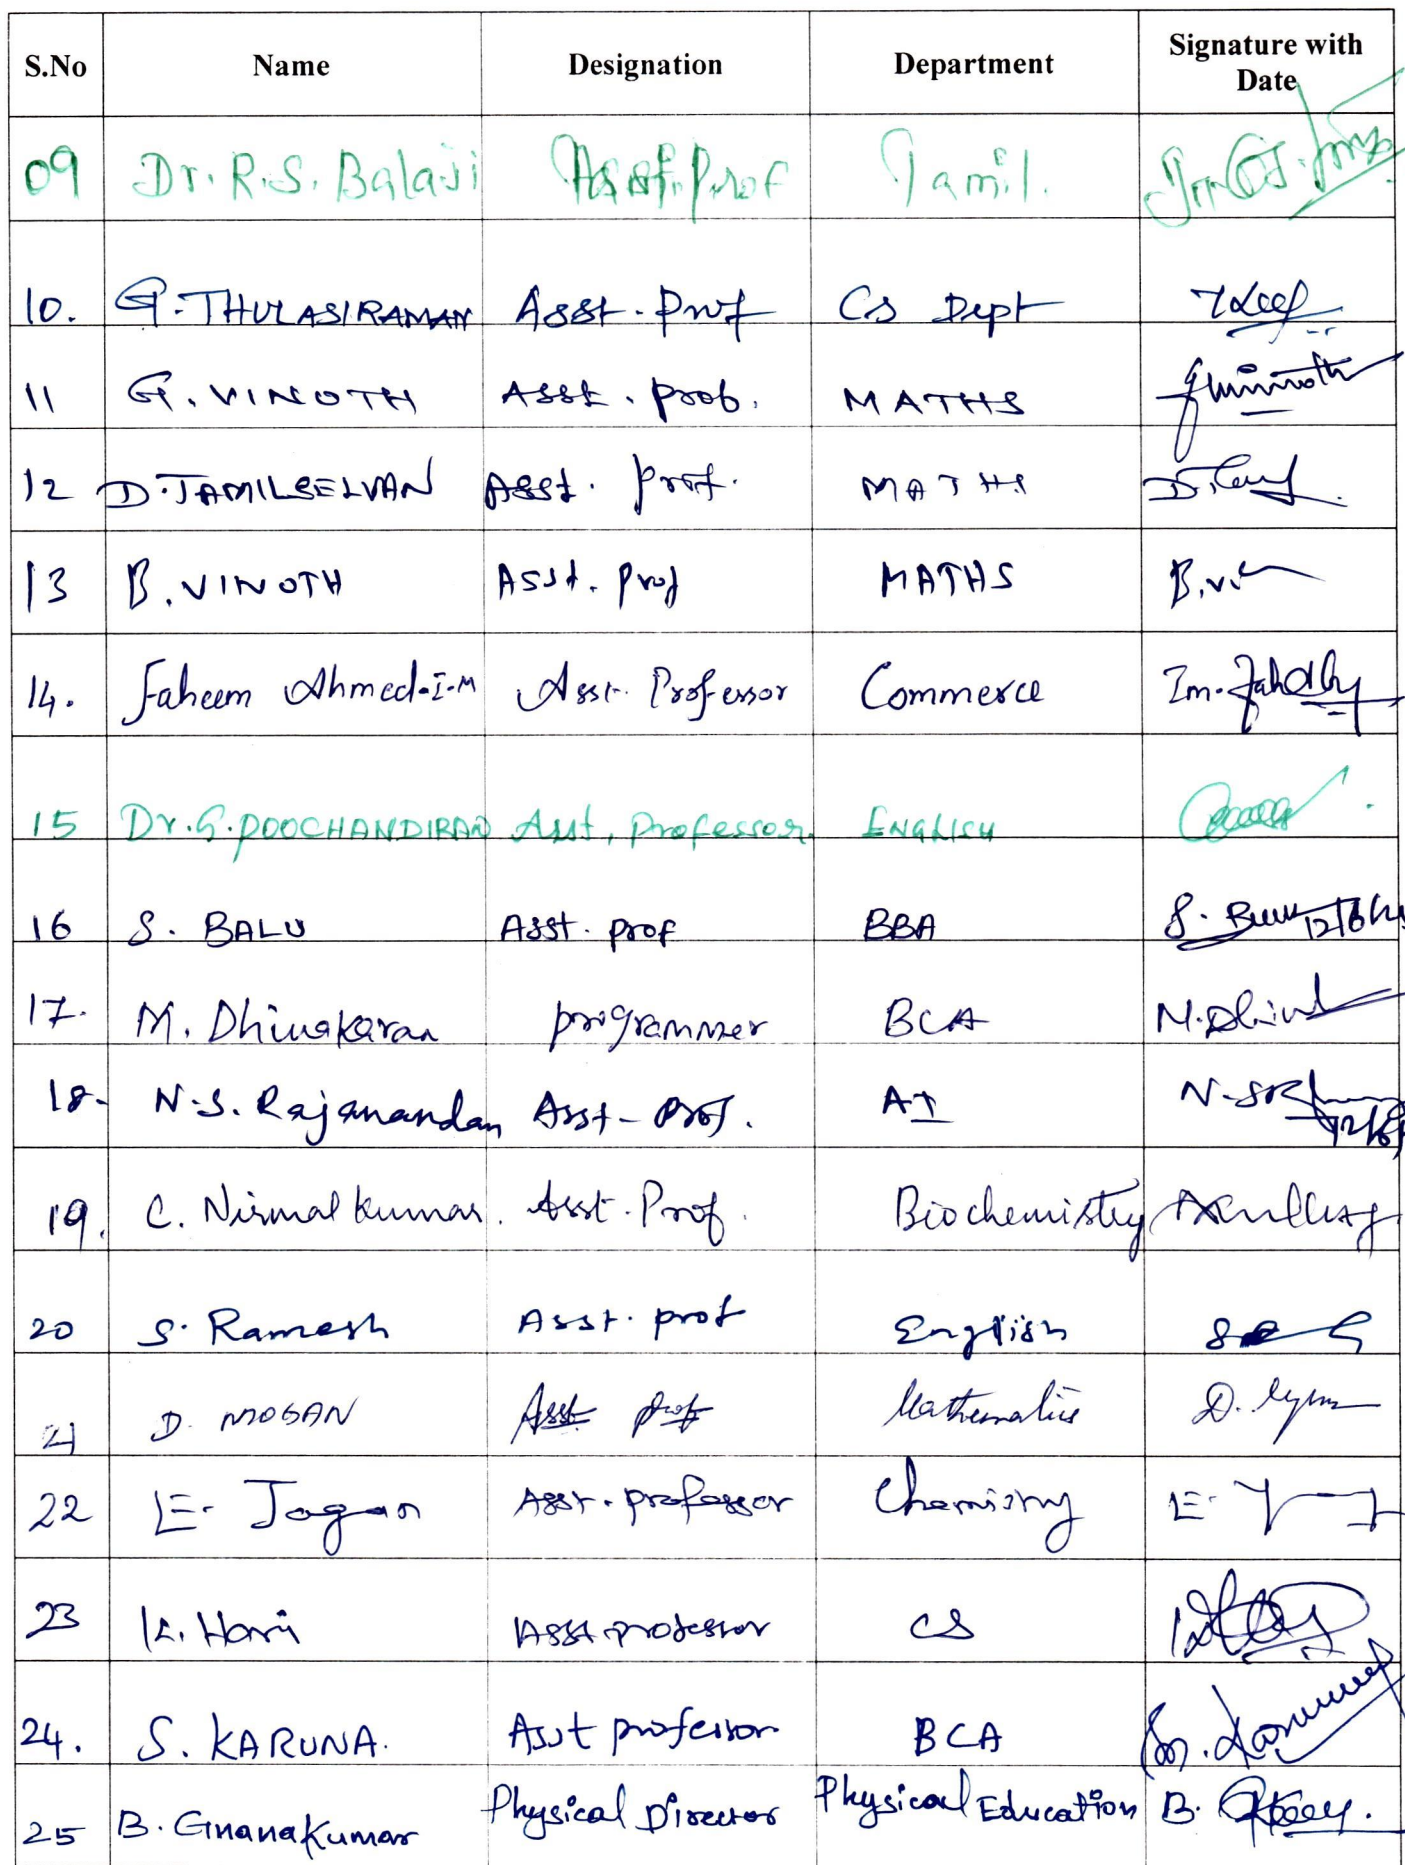 S.No Name Designation Department Signature with
Date
09 Dr. R.S. Balaji Asst. Prof Tamil.
10. G. THULASIRAMAN Asst. Prof CS Dept
11 G. VINOTH Asst. Prof. MATHS
12 D. TAMILSELVAN Asst. Prof. MATHS
13 B. VINOTH Asst. Prof MATHS B.
14. Faheem Ahmed-I-M Asst. Professor Commerce
15 Dr. G. POOCHANDIRAN Asst. Professor. ENGLISH
16 S. BALU Asst. prof BBA S.
17. M. Dhinakaran programmer BCA M.
18. N.S. Rajanandan Asst-Prof. AI
19. C. Nirmalkumar. Asst. Prof. Biochemistry
20 S. Ramesh Asst. prof English
21 D. MOGAN Asst prof Mathematics D.
22 E. Jagan Asst. professor Chemistry E.
23 K. Hari Asst. professor CS
24. S. KARUNA. Asst professor BCA
25 B. Gnanakumar Physical Director Physical Education B.